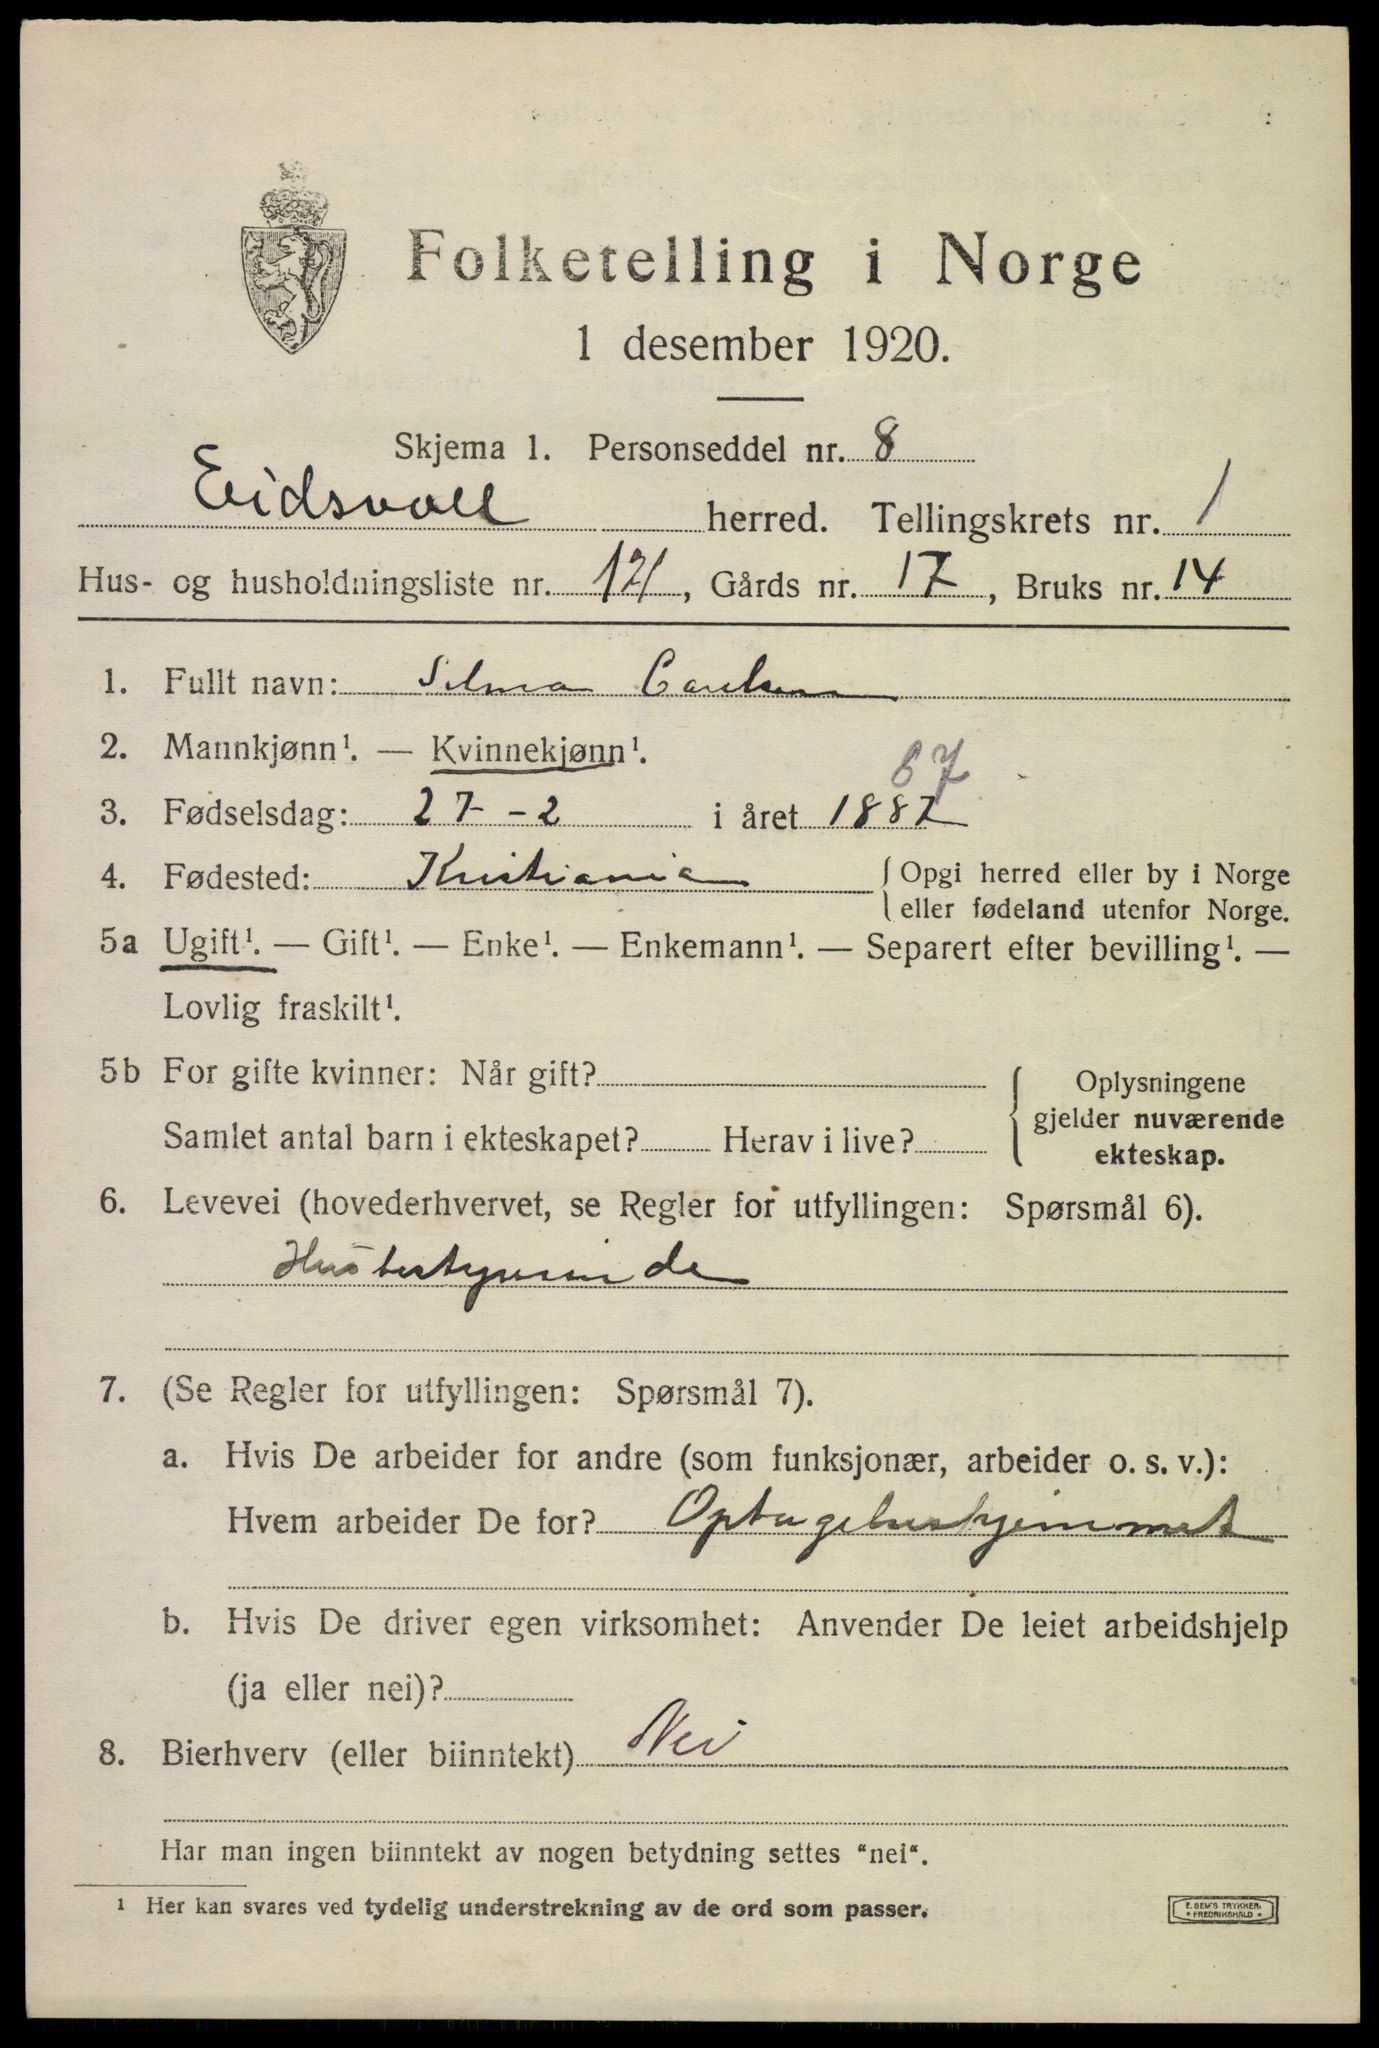 Folketelling i Norge
1 desember 1920.
Skjema 1. Personseddel nr. 8
Eidsvoll herred. Tellingskrets nr. 1
Hus- og husholdningsliste nr. 121, Gårds nr. 17, Bruks nr. 14
1. Fullt navn: Selma Carlsen
2. Mannkjønn¹. — Kvinnekjønn¹.
87
3. Fødselsdag: 27-2 i året 1887
4. Fødested: Kristiania { Opgi herred eller by i Norge
eller fødeland utenfor Norge.
5a Ugift¹. — Gift¹. — Enke¹. — Enkemann¹. — Separert efter bevilling¹. —
Lovlig fraskilt¹.
5b For gifte kvinner: Når gift?
Samlet antal barn i ekteskapet? Herav i live?
Oplysningene
gjelder nuværende
ekteskap.
6. Levevei (hovederhvervet, se Regler for utfyllingen: Spørsmål 6).
Husbestyrerinde
7. (Se Regler for utfyllingen: Spørsmål 7).
a. Hvis De arbeider for andre (som funksjonær, arbeider o. s. v.):
Hvem arbeider De for? Optagelseshjemmet
b. Hvis De driver egen virksomhet: Anvender De leiet arbeidshjelp
(ja eller nei)?
8. Bierhverv (eller biinntekt) Nei
Har man ingen biinntekt av nogen betydning settes “nei“.
¹ Her kan svares ved tydelig understrekning av de ord som passer.
E. SEM'S TRYKKERI
* FREDRIKSHALD *